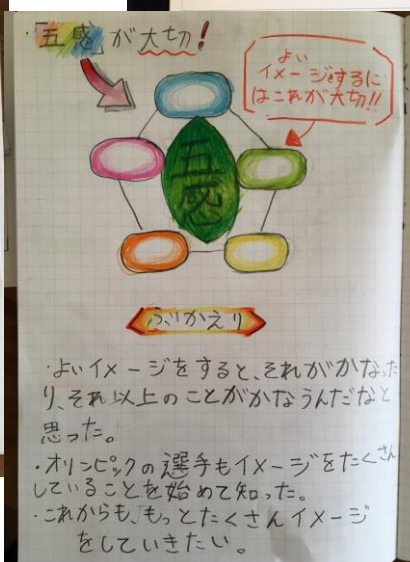 ・「五感」が大切!
よい
イメージをするに
はこれが大切!!
五感
ふりかえり
・よいイメージをすると、それがかなった
り、それ以上のことがかなうんだなと
思った。
・オリンピックの選手もイメージをたくさん
していることを始めて知った。
・これからも、もっとたくさんイメージ
をしていきたい。